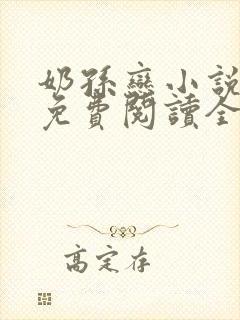 奶孫戀小說
免費閱讀全
高定存